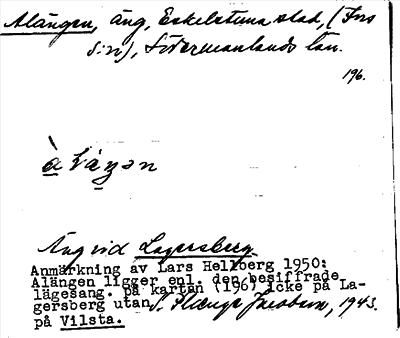 Alängen, äng, Eskilstuna stad, (Fors
s:n), Södermanlands län.
196.
Äng vid Lagersberg.
Anmärkning av Lars Hellberg 1950:
Alängen ligger enl. den besiffrade
lägesang. på kartan (196) icke på La-
gersberg utan S. Jacobson, 1943.
på Vilsta.